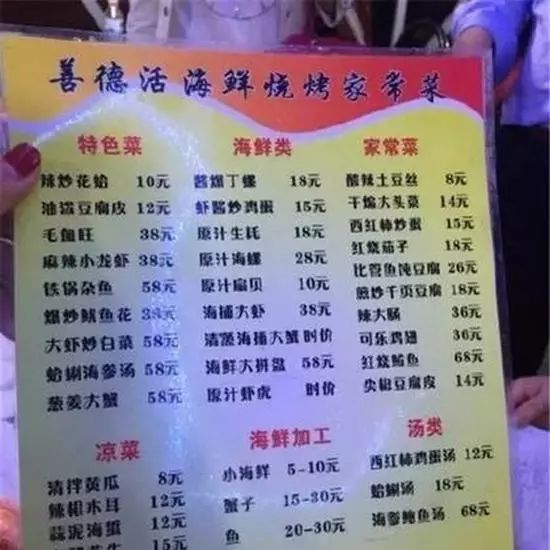 善德活海鲜烧烤家常菜
特色菜
辣炒花蛤 10元
油泼豆腐皮 12元
毛血旺 38元
麻辣小龙虾 38元
铁锅杂鱼 58元
爆炒鱿鱼花 38元
大虾炒白菜 58元
蛤蜊海参汤 58元
葱姜大蟹 58元
海鲜类
酱爆丁螺 18元
虾酱炒鸡蛋 15元
原汁生蚝 18元
原汁海螺 28元
原汁扇贝 10元
海捕大虾 38元
清蒸海捕大蟹 时价
海鲜大拼盘 58元
原汁虾虎 时价
家常菜
酸辣土豆丝 8元
干煸大头菜 14元
西红柿炒蛋 15元
红烧茄子 18元
比管鱼炖豆腐 26元
煎炒千页豆腐 18元
辣大肠 36元
可乐鸡翅 36元
红烧鲳鱼 68元
尖椒豆腐皮 14元
凉菜
清拌黄瓜 8元
辣根木耳 12元
蒜泥海蜇 12元
15元
海鲜加工
小海鲜 5-10元
蟹子 15-30元
鱼 20-30元
汤类
西红柿鸡蛋汤 12元
蛤蜊汤 18元
海参鲍鱼汤 68元